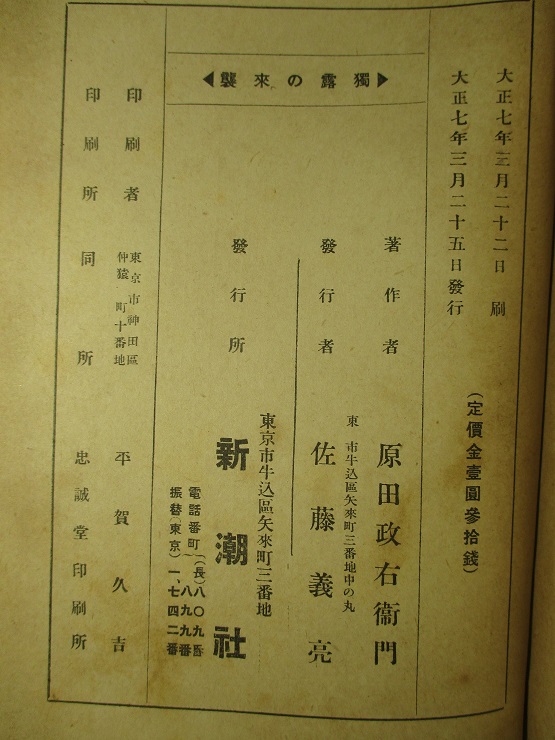 大正七年三月二十二日 刷
大正七年三月二十五日發行
(定價金壹圓參拾錢)
獨露の來襲
著作者 原田政右衞門
東 市牛込區矢來町三番地中の丸
發行者 佐藤義亮
東京市牛込區矢來町三番地
發行所 新潮社
電話番町(長)八〇九番
八九九番
振替(東京)一、七四二番
東京市神田區
仲猿 町十番地
印刷者 平賀久吉
印刷所 同所 忠誠堂印刷所